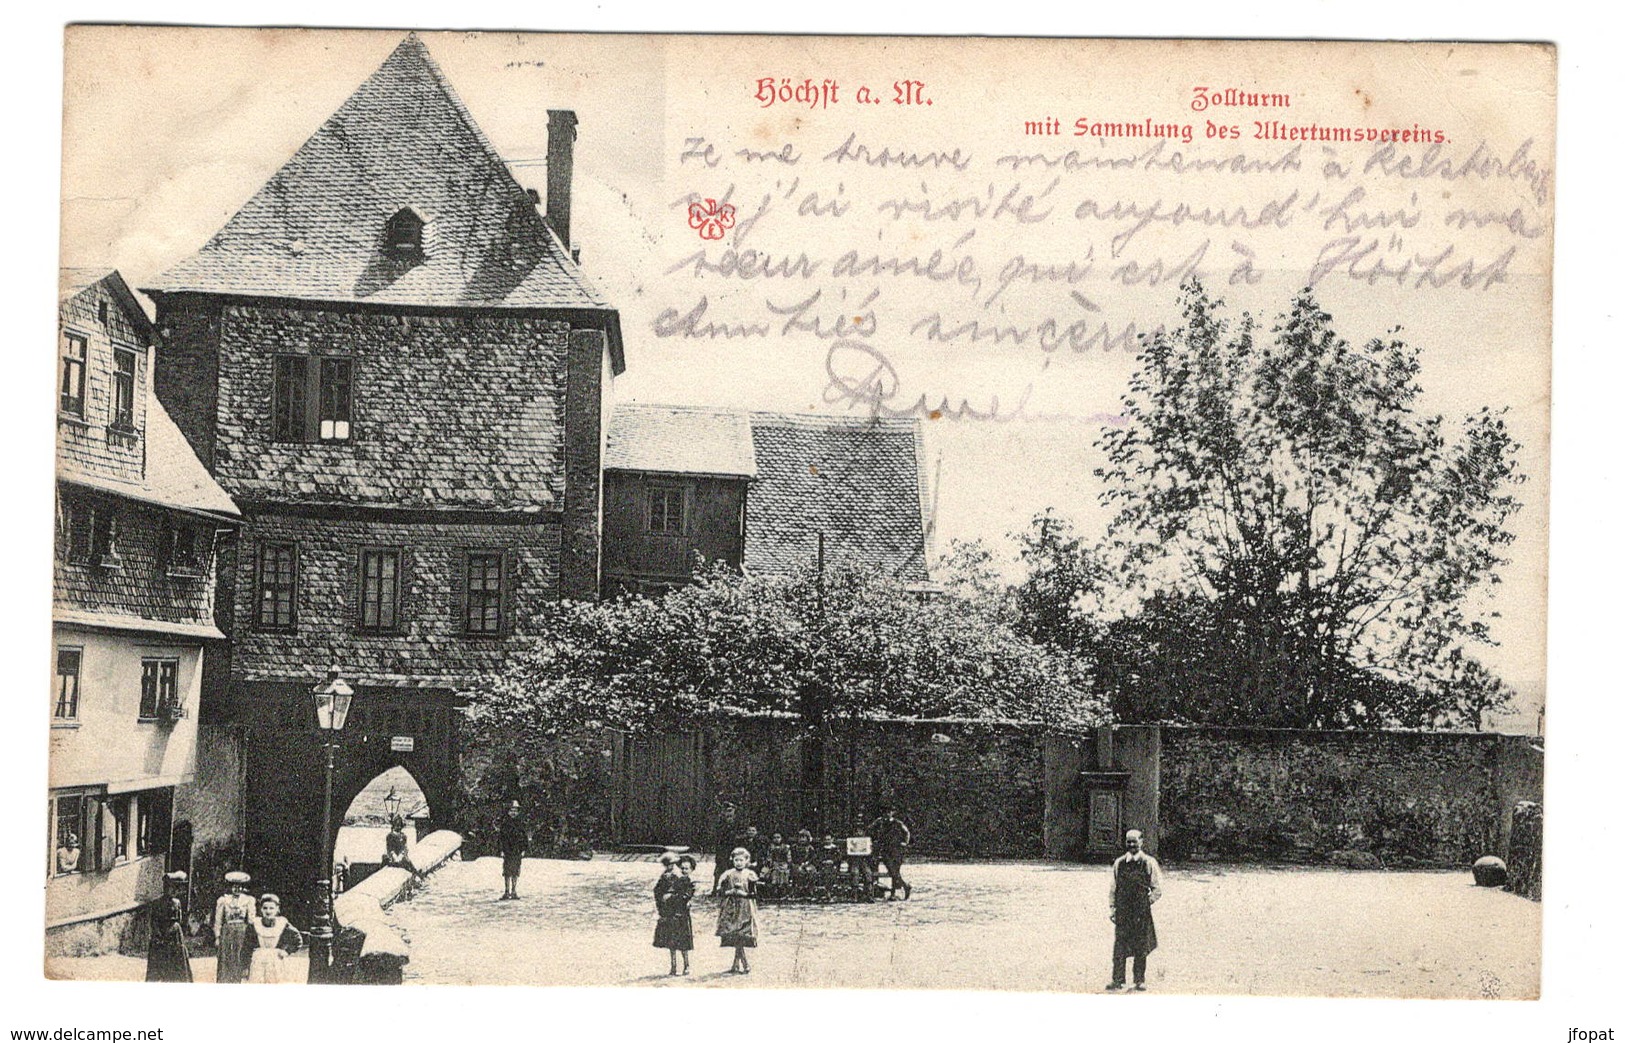 Höchst a. M.
Zollturm
mit Sammlung des Altertumsvereins.
Je me trouve maintenant à Kelsterbach
et j'ai visité aujourd'hui ma
soeur ainée, qui est à Höchst
Amitiés sincères
www.delcampe.net
jfopat